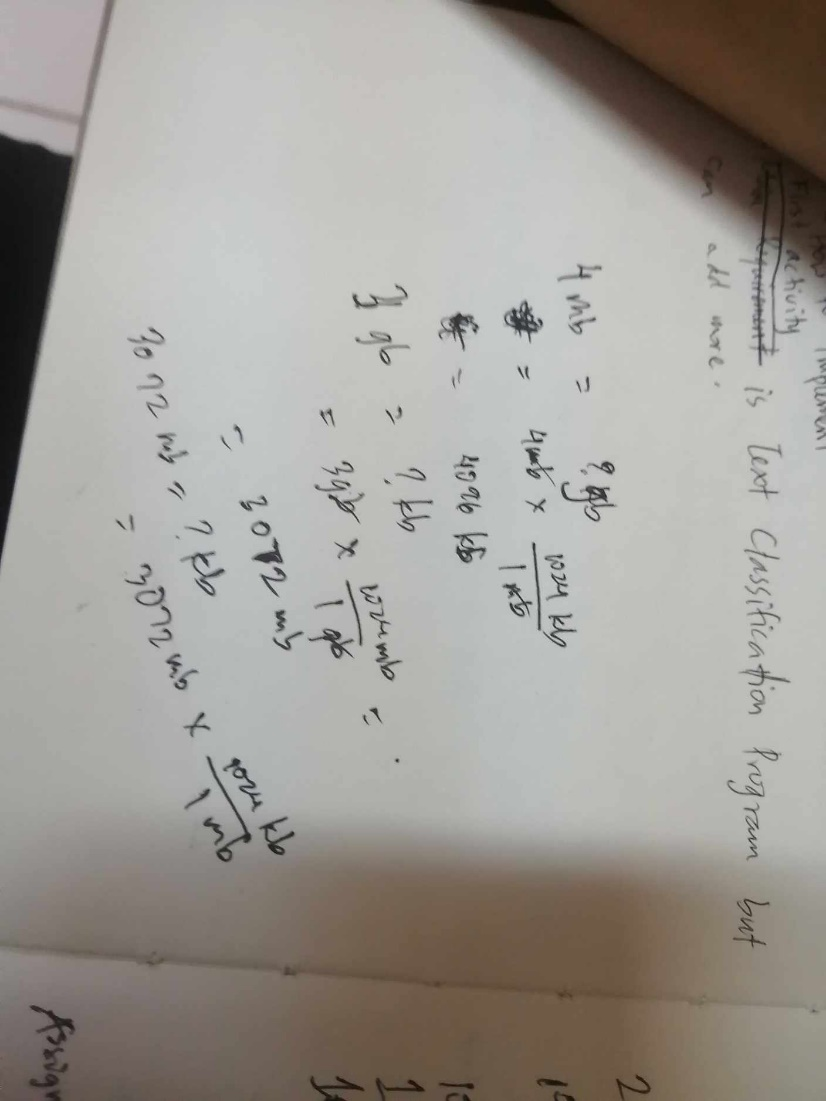 First activity
is Text Classification Program but
can add more.
4 mb = ? kb
= 4mb × 1024 kb / 1 mb
= 4096 kb
3 gb = ? kb
= 3gb × 1024 mb / 1 gb = .
= 3072 mb
3072 mb = ? kb
= 3072 mb × 1024 kb / 1 mb